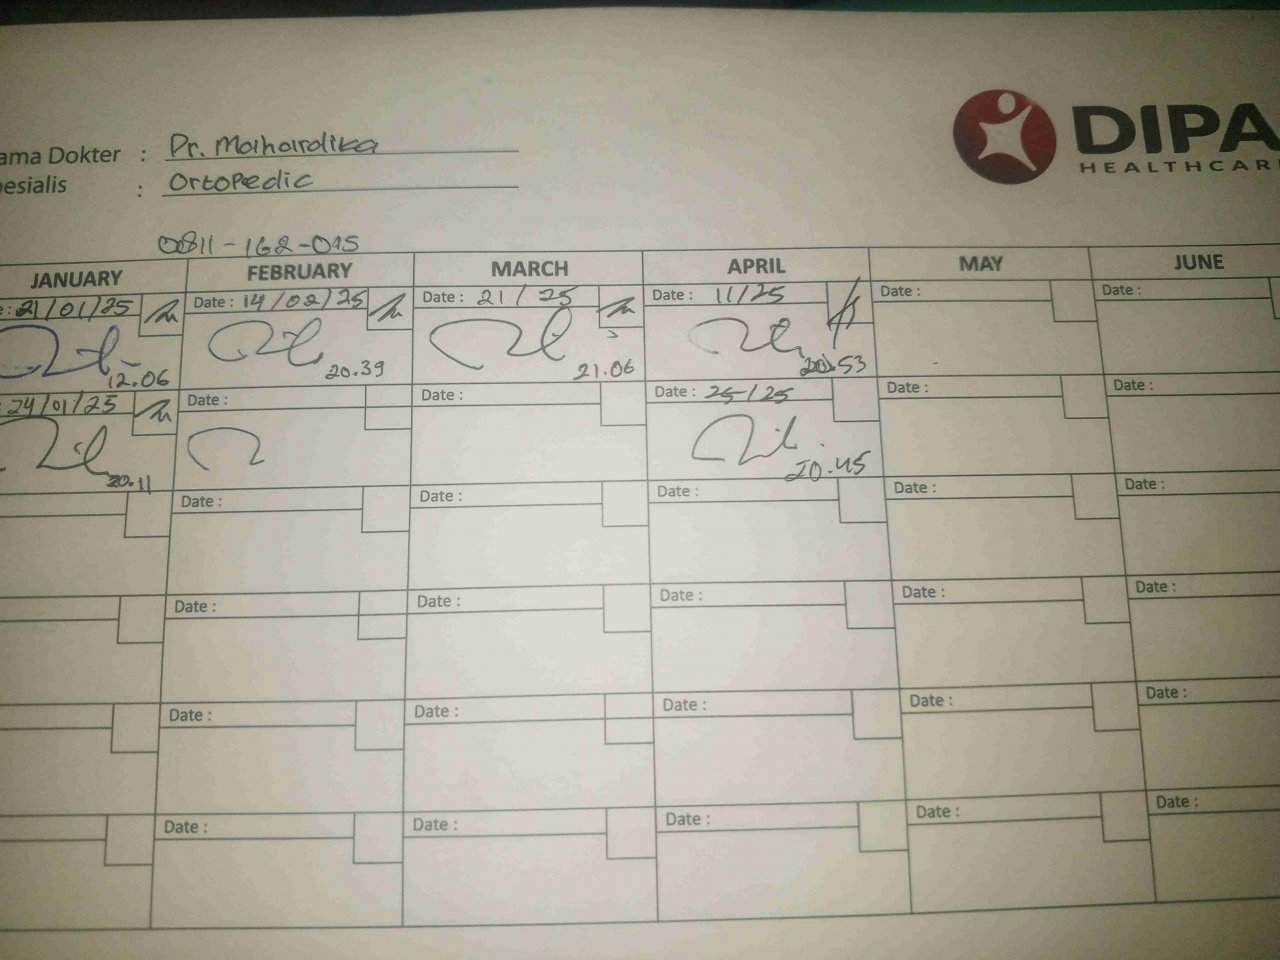 DIPA
HEALTHCAR
ama Dokter : Dr. Mahardika
esialis : Ortopedic
0811-162-015
JANUARY FEBRUARY MARCH APRIL MAY JUNE
e : 21/01/25 Date : 14/02/25 Date : 21/ 25 Date : 11/25 Date : Date :
12.06 20.39 21.06 20.53
: 24/01/25 Date : Date : Date : 25/25 Date : Date :
20.11 20.45
Date : Date : Date : Date : Date :
Date : Date : Date : Date : Date :
Date : Date : Date : Date : Date :
Date : Date : Date : Date : Date :